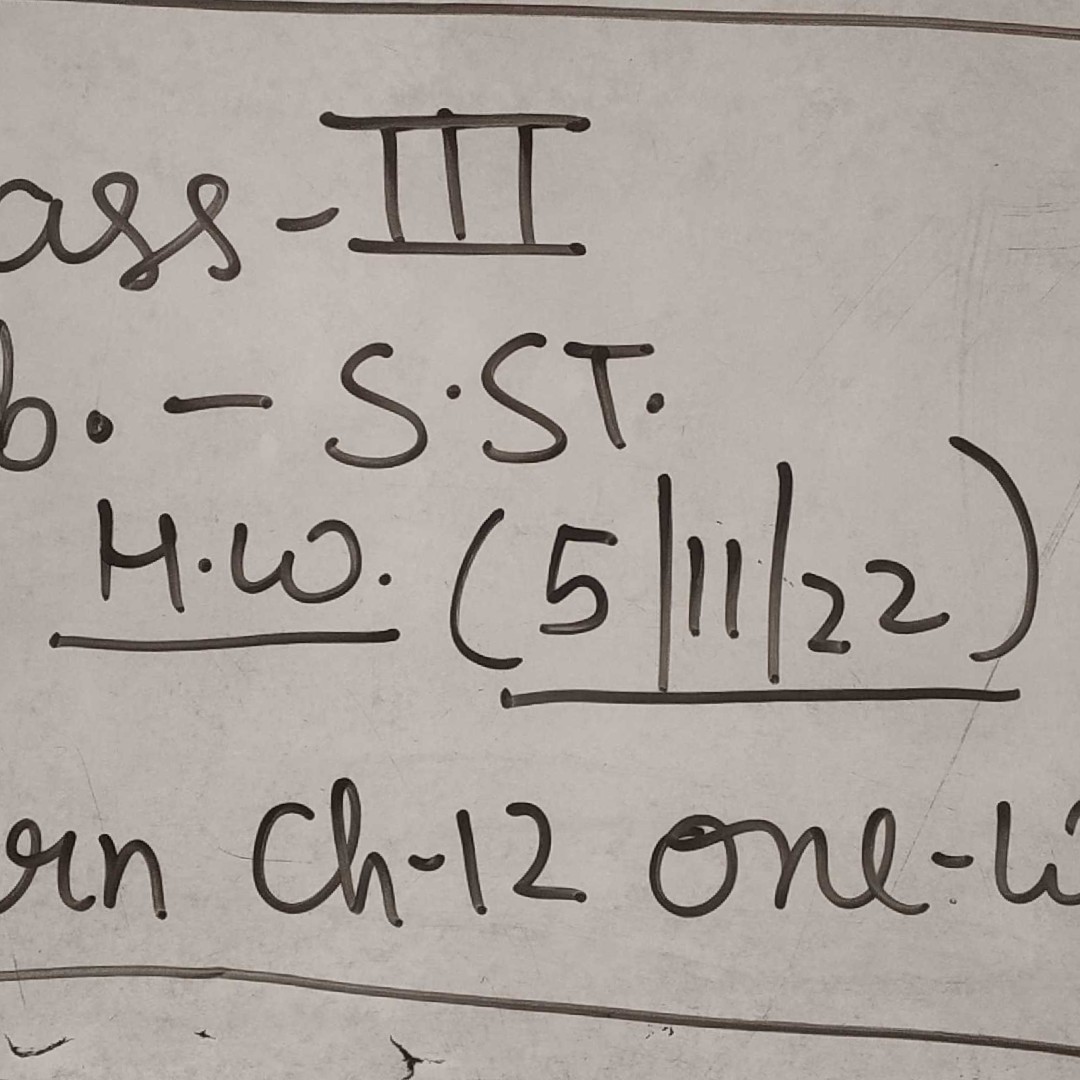 ass - III
b. - S.ST.
H.W. (5/11/22)
arn Ch-12 One-li